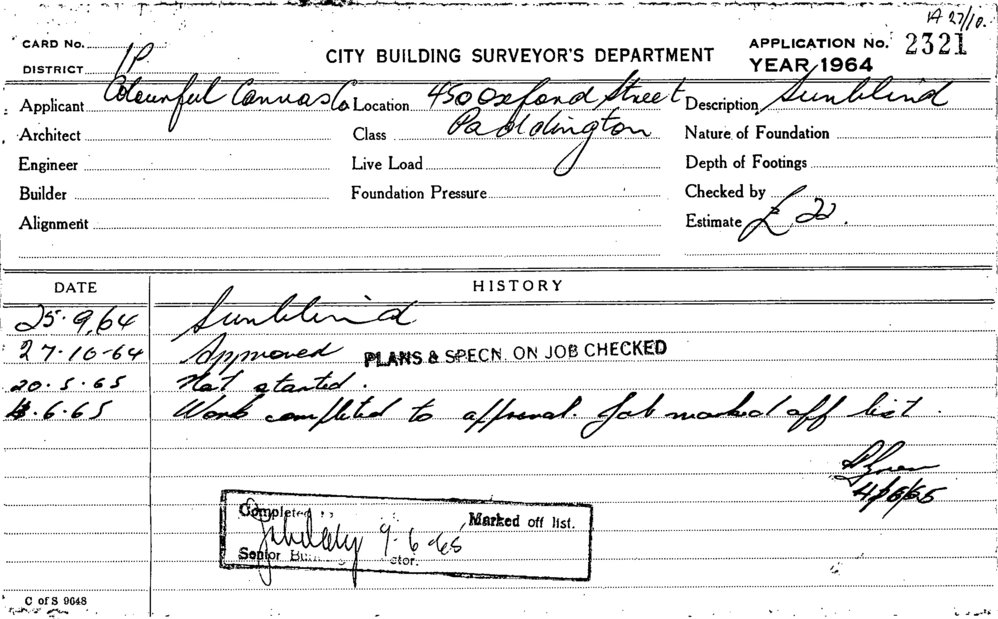 IA 27/10.
CARD No.
CITY BUILDING SURVEYOR'S DEPARTMENT
APPLICATION No. 2321
DISTRICT 1P
YEAR 1964
Applicant Colourful Canvas Co Location 450 Oxford Street Description Sunblind
Architect Class Paddington Nature of Foundation
Engineer Live Load Depth of Footings
Builder Foundation Pressure Checked by
Alignment Estimate £22.
DATE HISTORY
25.9.64 Sunblind
27.10.64 Approved PLANS & SPECN. ON JOB CHECKED
20.5.65 Not started.
4.6.65 Work completed to approval. Job marked off list.
4/6/65
Completed Marked off list.
9-6-65
Senior
C of S 9648